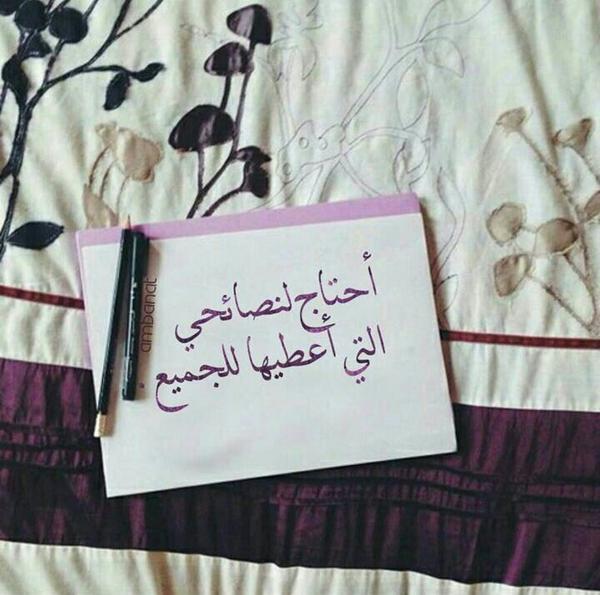 أحتاج لنصائحي
التي أعطيها للجميع .
ambanat